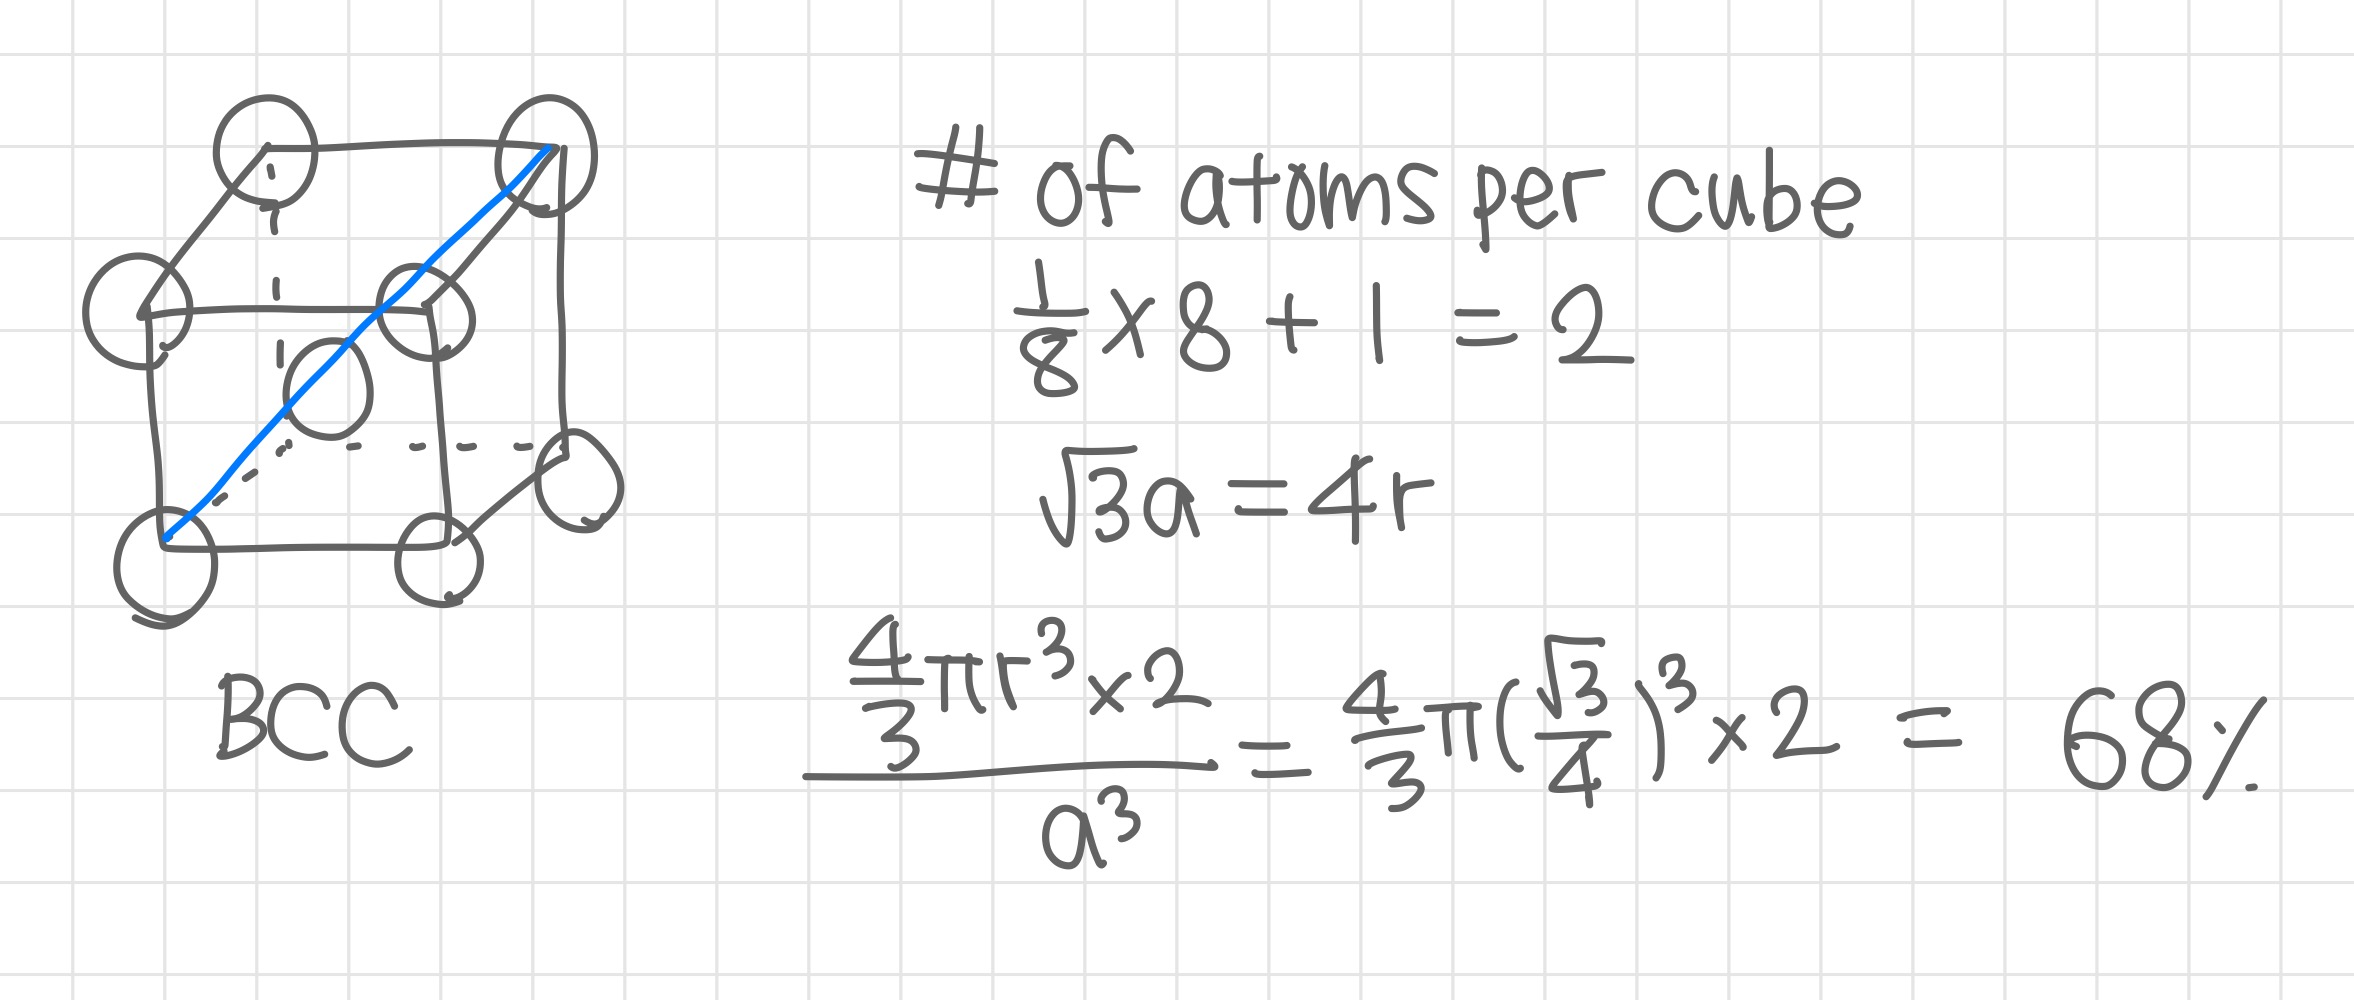 # of atoms per cube
1/8 × 8 + 1 = 2
√3a = 4r
(4/3 πr³ × 2)/a³ = 4/3 π(√3/4)³ × 2 = 68%
BCC